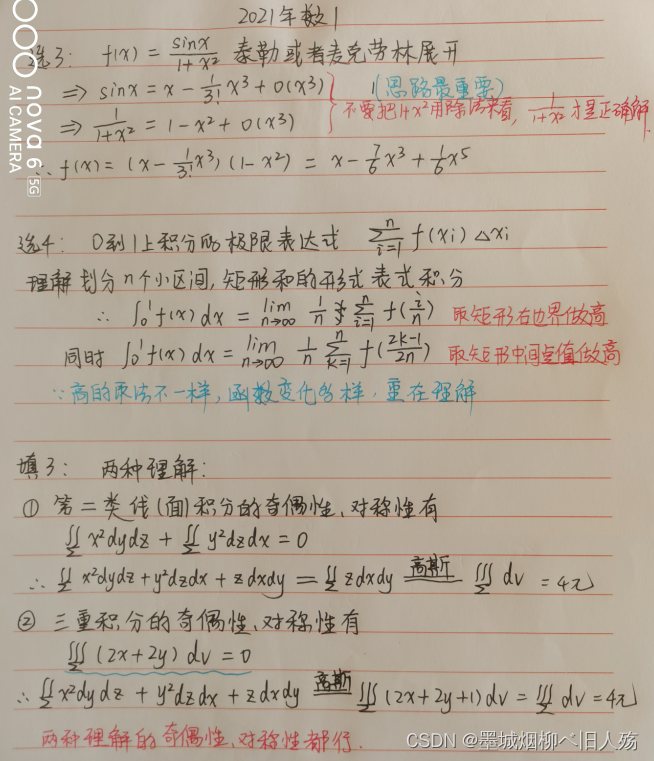 2021年数1
选3: f(x) = sinx/(1+x²) 泰勒或者麦克劳林展开
⇒ sinx = x - 1/3! x³ + o(x³)
(思路最重要)
⇒ 1/(1+x²) = 1 - x² + o(x³)
不要把1+x²用除法来看, 1/(1+x²) 才是正确解.
∴ f(x) = (x - 1/3! x³)(1 - x²) = x - 7/6 x³ + 1/6 x⁵
选4: 0到1上积分的极限表达式 ∑_{i=1}^{n} f(xi) △xi
理解划分n个小区间, 矩形和的形式表式积分
∴ ∫₀¹ f(x) dx = lim_{n→∞} 1/n ∑_{i=1}^{n} f(i/n) 取矩形右边界做高
同时 ∫₀¹ f(x) dx = lim_{n→∞} 1/n ∑_{k=1}^{n} f((2k-1)/2n) 取矩形中间点值做高
∵高的取法不一样, 函数变化多样, 重在理解
填3: 两种理解:
① 第二类线(面)积分的奇偶性、对称性有
∬_Σ x²dydz + ∬_Σ y²dzdx = 0
∴ ∬_Σ x²dydz + y²dzdx + zdxdy = ∬_Σ zdxdy 高斯 ∭_Σ dv = 4π
② 三重积分的奇偶性、对称性有
∭_Σ (2x+2y) dv = 0
∴ ∬_Σ x²dydz + y²dzdx + zdxdy 高斯 ∭_Σ (2x+2y+1)dv = ∭_Σ dv = 4π
两种理解的奇偶性、对称性都行.
nova 6 5G
AI CAMERA
CSDN @墨城烟柳ベ旧人殇